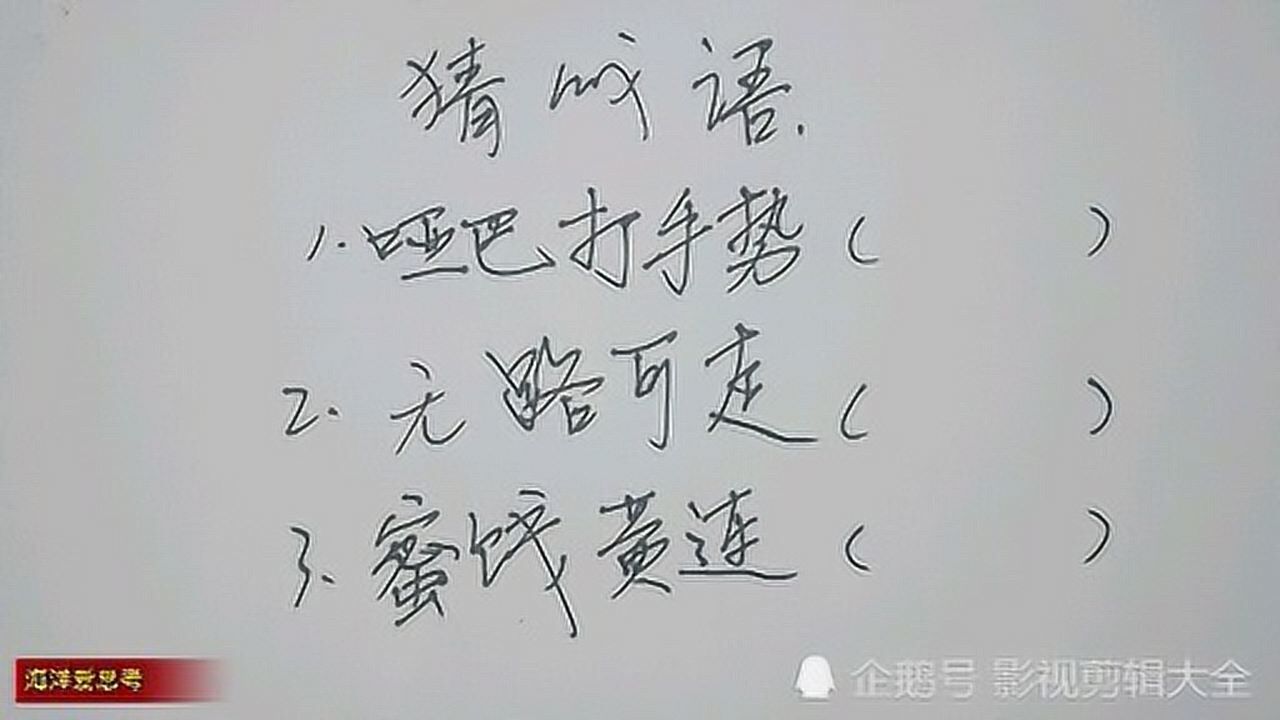 猜成语.
1.哑巴打手势( )
2.无路可走( )
3.蜜饯黄连( )
企鹅号 影视剪辑大全